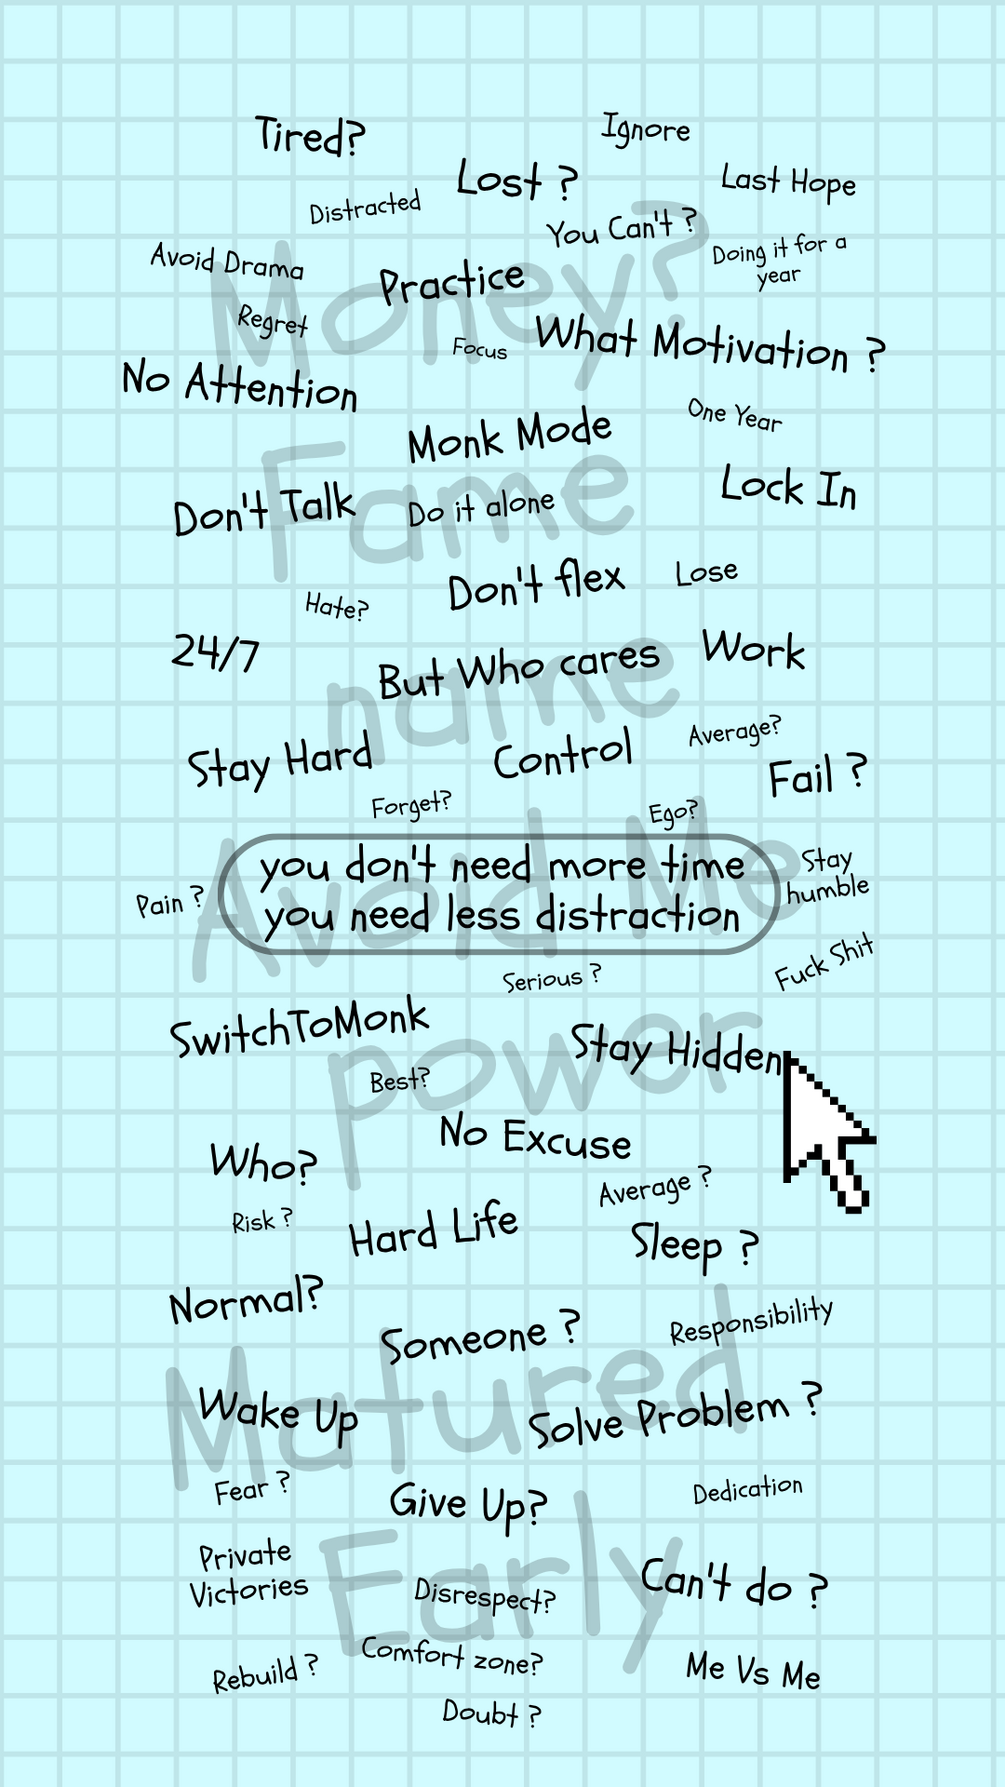 Tired?
Ignore
Lost ?
Last Hope
Distracted
You Can't ?
Doing it for a
year
Avoid Drama
Money?
Practice
Regret
Focus
What Motivation ?
No Attention
One Year
Monk Mode
Fame
Lock In
Don't Talk
Do it alone
Don't flex
Lose
Hate?
24/7
But Who cares
Work
name
Stay Hard
Control
Average?
Fail ?
Forget?
Ego?
Avoid Me
you don't need more time
you need less distraction
Stay
humble
Pain ?
Fuck Shit
Serious ?
SwitchToMonk
Stay Hidden
power
Best?
No Excuse
Who?
Average ?
Risk ?
Hard Life
Sleep ?
Normal?
Someone ?
Responsibility
Matured
Wake Up
Solve Problem ?
Fear ?
Give Up?
Dedication
Private
Victories
Early
Disrespect?
Can't do ?
Comfort zone?
Rebuild ?
Me Vs Me
Doubt ?